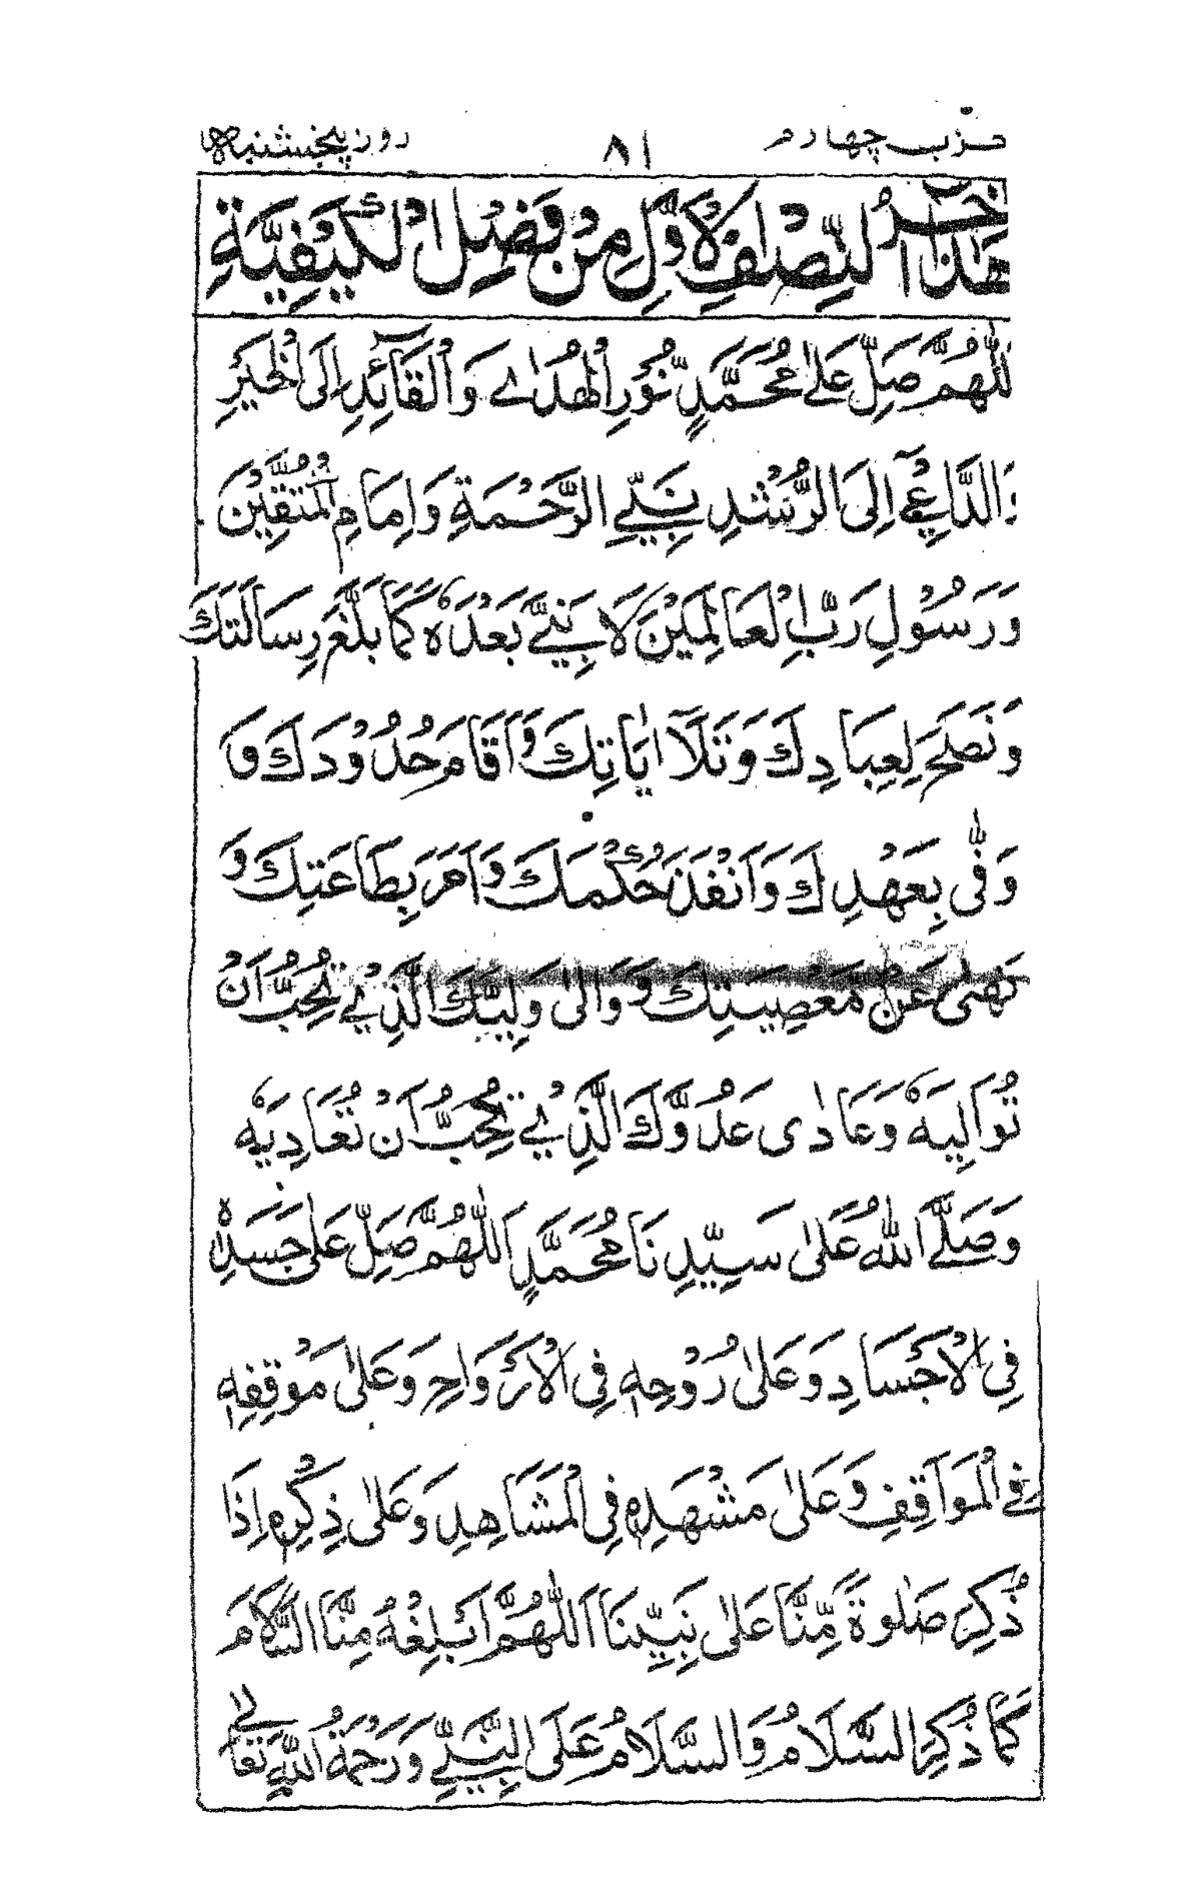 حزب چهارم ۸۱ روز پنجشنبه
هٰذَا اٰخِرُ النِّصْفِ الْاَوَّلِ مِنْ فَصْلِ الْكَيْفِيَّةِ
اَللّٰهُمَّ صَلِّ عَلٰى مُحَمَّدٍ نُّوْرِ الْهُدٰى وَالْقَآئِدِ اِلَى الْخَيْرِ
وَالدَّاعِيْ اِلَى الرُّشْدِ نَبِيِّ الرَّحْمَةِ وَاِمَامِ الْمُتَّقِيْنَ
وَرَسُوْلِ رَبِّ الْعَالَمِيْنَ لَا نَبِيَّ بَعْدَهٗ كَمَا بَلَّغَ رِسَالَتَكَ
وَنَصَحَ لِعِبَادِكَ وَتَلَآ اٰيَاتِكَ وَاَقَامَ حُدُوْدَكَ وَ
وَفّٰى بِعَهْدِكَ وَاَنْفَذَ حُكْمَكَ وَاَمَرَ بِطَاعَتِكَ وَ
نَهٰى عَنْ مَعْصِيَتِكَ وَ وَالٰى وَلِيَّكَ الَّذِيْ تُحِبُّ اَنْ
تُوَالِيَهٗ وَعَادٰى عَدُوَّكَ الَّذِيْ تُحِبُّ اَنْ تُعَادِيَهٗ
وَصَلَّى اللّٰهُ عَلٰى سَيِّدِنَا مُحَمَّدٍ اَللّٰهُمَّ صَلِّ عَلٰى جَسَدِهٖ
فِي الْاَجْسَادِ وَعَلٰى رُوْحِهٖ فِي الْاَرْوَاحِ وَعَلٰى مَوْقِفِهٖ
فِي الْمَوَاقِفِ وَعَلٰى مَشْهَدِهٖ فِي الْمَشَاهِدِ وَعَلٰى ذِكْرِهٖ اِذَا
ذُكِرَ صَلٰوةً مِّنَّا عَلٰى نَبِيِّنَا اَللّٰهُمَّ اَبْلِغْهُ مِنَّا السَّلَامَ
كَمَا ذُكِرَ السَّلَامُ وَالسَّلَامُ عَلَى النَّبِيِّ وَرَحْمَةُ اللّٰهِ تَعَالٰى